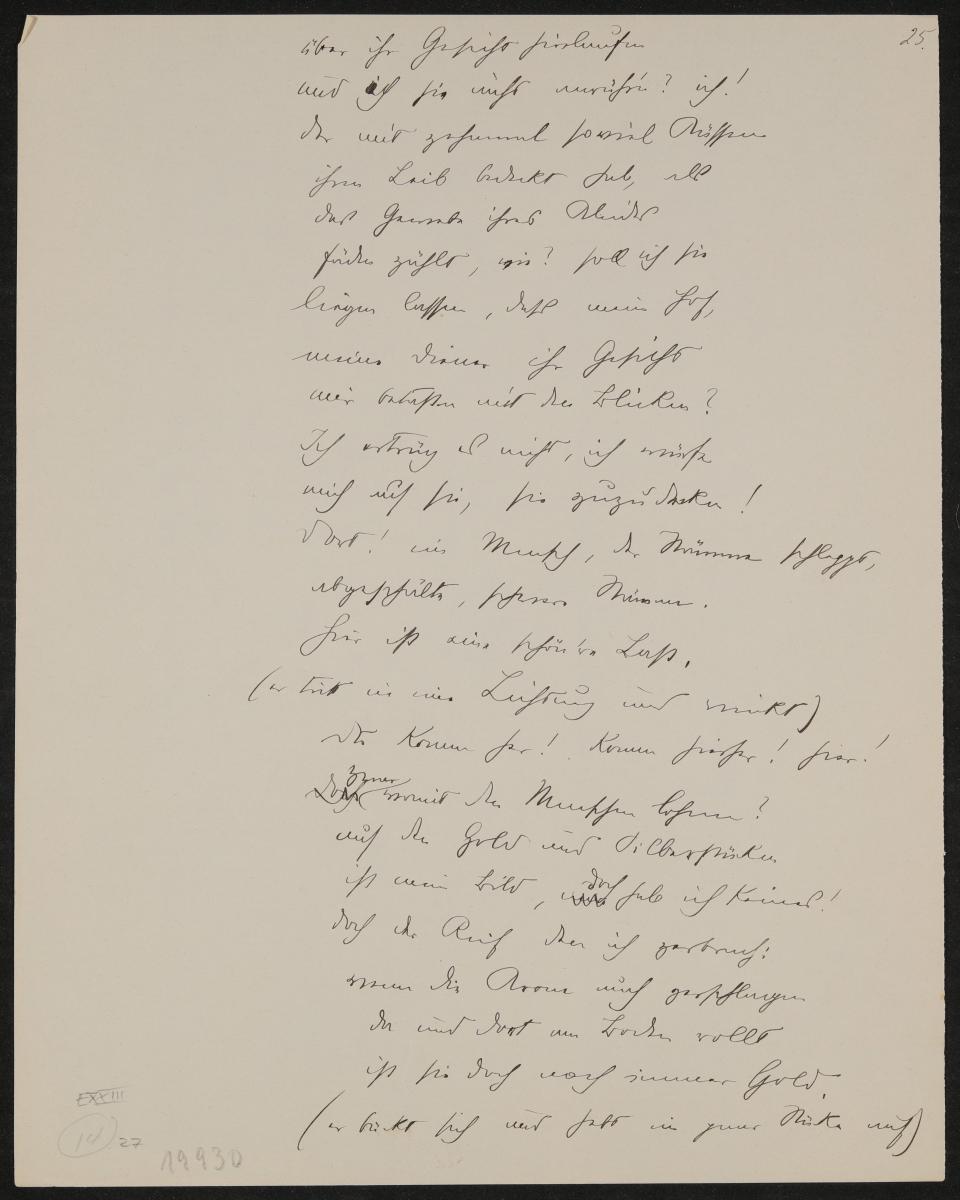 25.
über ihr Gesicht hinlaufen
und ich sie nicht anrührn? ich!
der mit zehnmal soviel Küssen
ihren Leib bedeckt hab, als
das Gewebe ihres Kleides
fäden zählt, wie? soll ich sie
liegen lassen, dass mein Hof,
meine Diener ihr Gesicht
mir betasten mit den Blicken?
Ich ertrüg es nicht, ich würfe
mich auf sie, sie zuzudecken!
Dort! ein Mensch, der Stämme schleppt,
abgeschälte, schwere Stämme.
hier ist eine schön're Last.
(er tritt in eine Lichtung und winkt)
du komm her! komm hierher! hier!
zwar
womit den Menschen lohnen?
auf den Gold und Silberstücken
ist mein Bild, doch hab ich keines!
doch der Reif den ich zerbrach:
wenn die Krone auch zerschlagen
da und dort am Boden rollt
ist sie doch noch immer Gold.
(er bückt sich und hebt ein paar Stücke auf)
EXXIII
14 27
19930